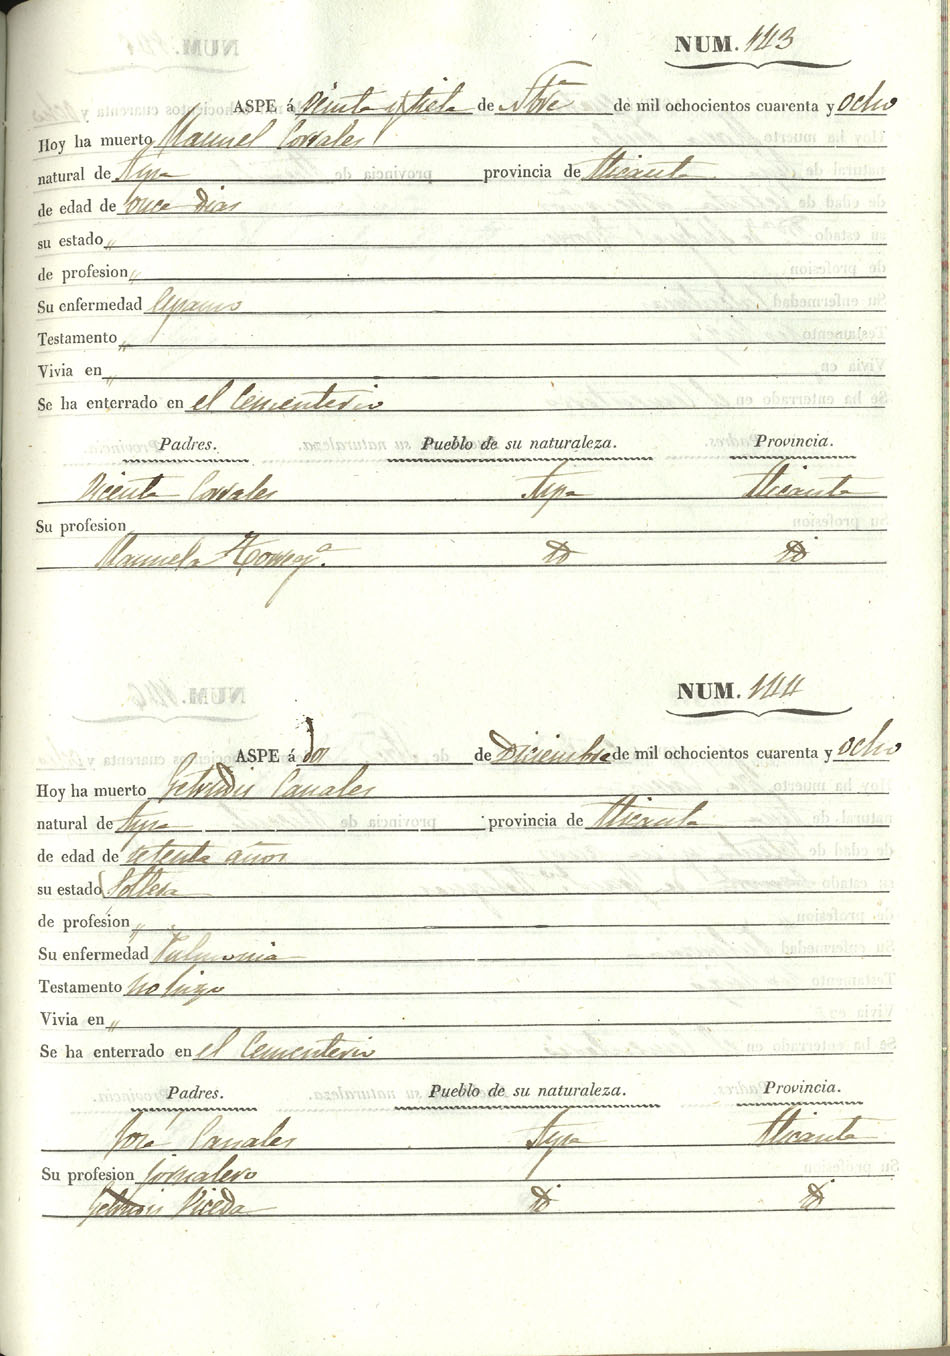 NUM. 143
ASPE á Veinte y siete de Nbre de mil ochocientos cuarenta y ocho
Hoy ha muerto Manuel Corrales
natural de Aspe provincia de Alicante
de edad de once Dias
su estado "
de profesion "
Su enfermedad Espasmo
Testamento "
Vivia en "
Se ha enterrado en el Cementerio
Padres. Pueblo de su naturaleza. Provincia.
Vicente Corrales Aspe Alicante
Su profesion
Manuela Id Id
NUM. 144
ASPE á dos de Diciembre de mil ochocientos cuarenta y ocho
Hoy ha muerto Getrudis Canales
natural de Aspe provincia de Alicante
de edad de setenta años
su estado Soltera
de profesion "
Su enfermedad Pulmonia
Testamento no hizo
Vivia en "
Se ha enterrado en el Cementerio
Padres. Pueblo de su naturaleza. Provincia.
José Canales Aspe Alicante
Su profesion jornalero
Viceda Id Id